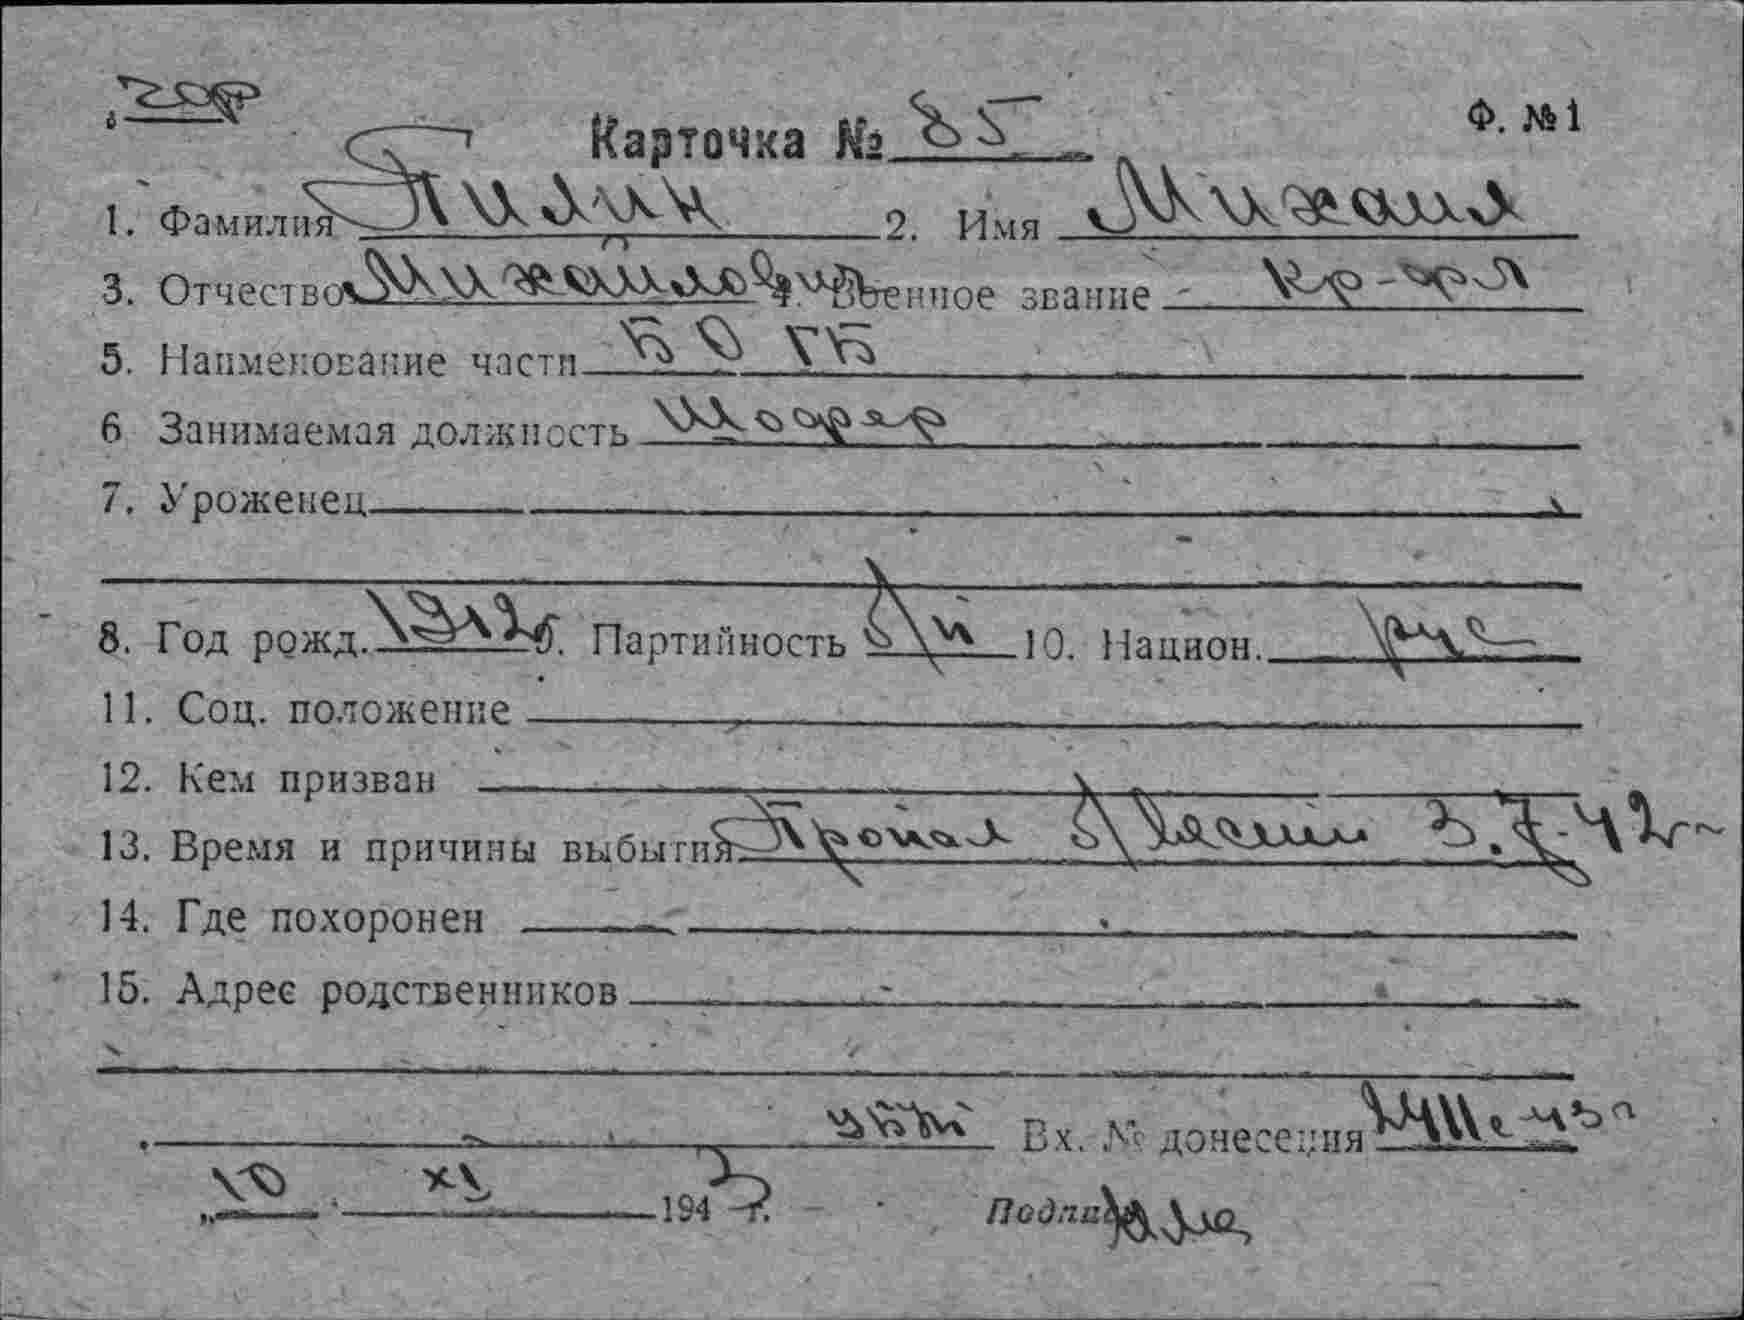 Ф. №1
Карточка № 85
1. Фамилия Пилин 2. Имя Михаил
3. Отчество Михайлович 4. Военное звание кр-фл
5. Наименование части БО ГБ
6 Занимаемая должность Шофер
7. Уроженец
8. Год рожд. 1912 9. Партийность б/п 10. Национ. рус
11. Соц. положение
12. Кем призван
13. Время и причины выбытия Пропал б/вести 3.7.42г
14. Где похоронен
15. Адрес родственников
Вх. № донесения
„10 XI 1943 г. Подпись